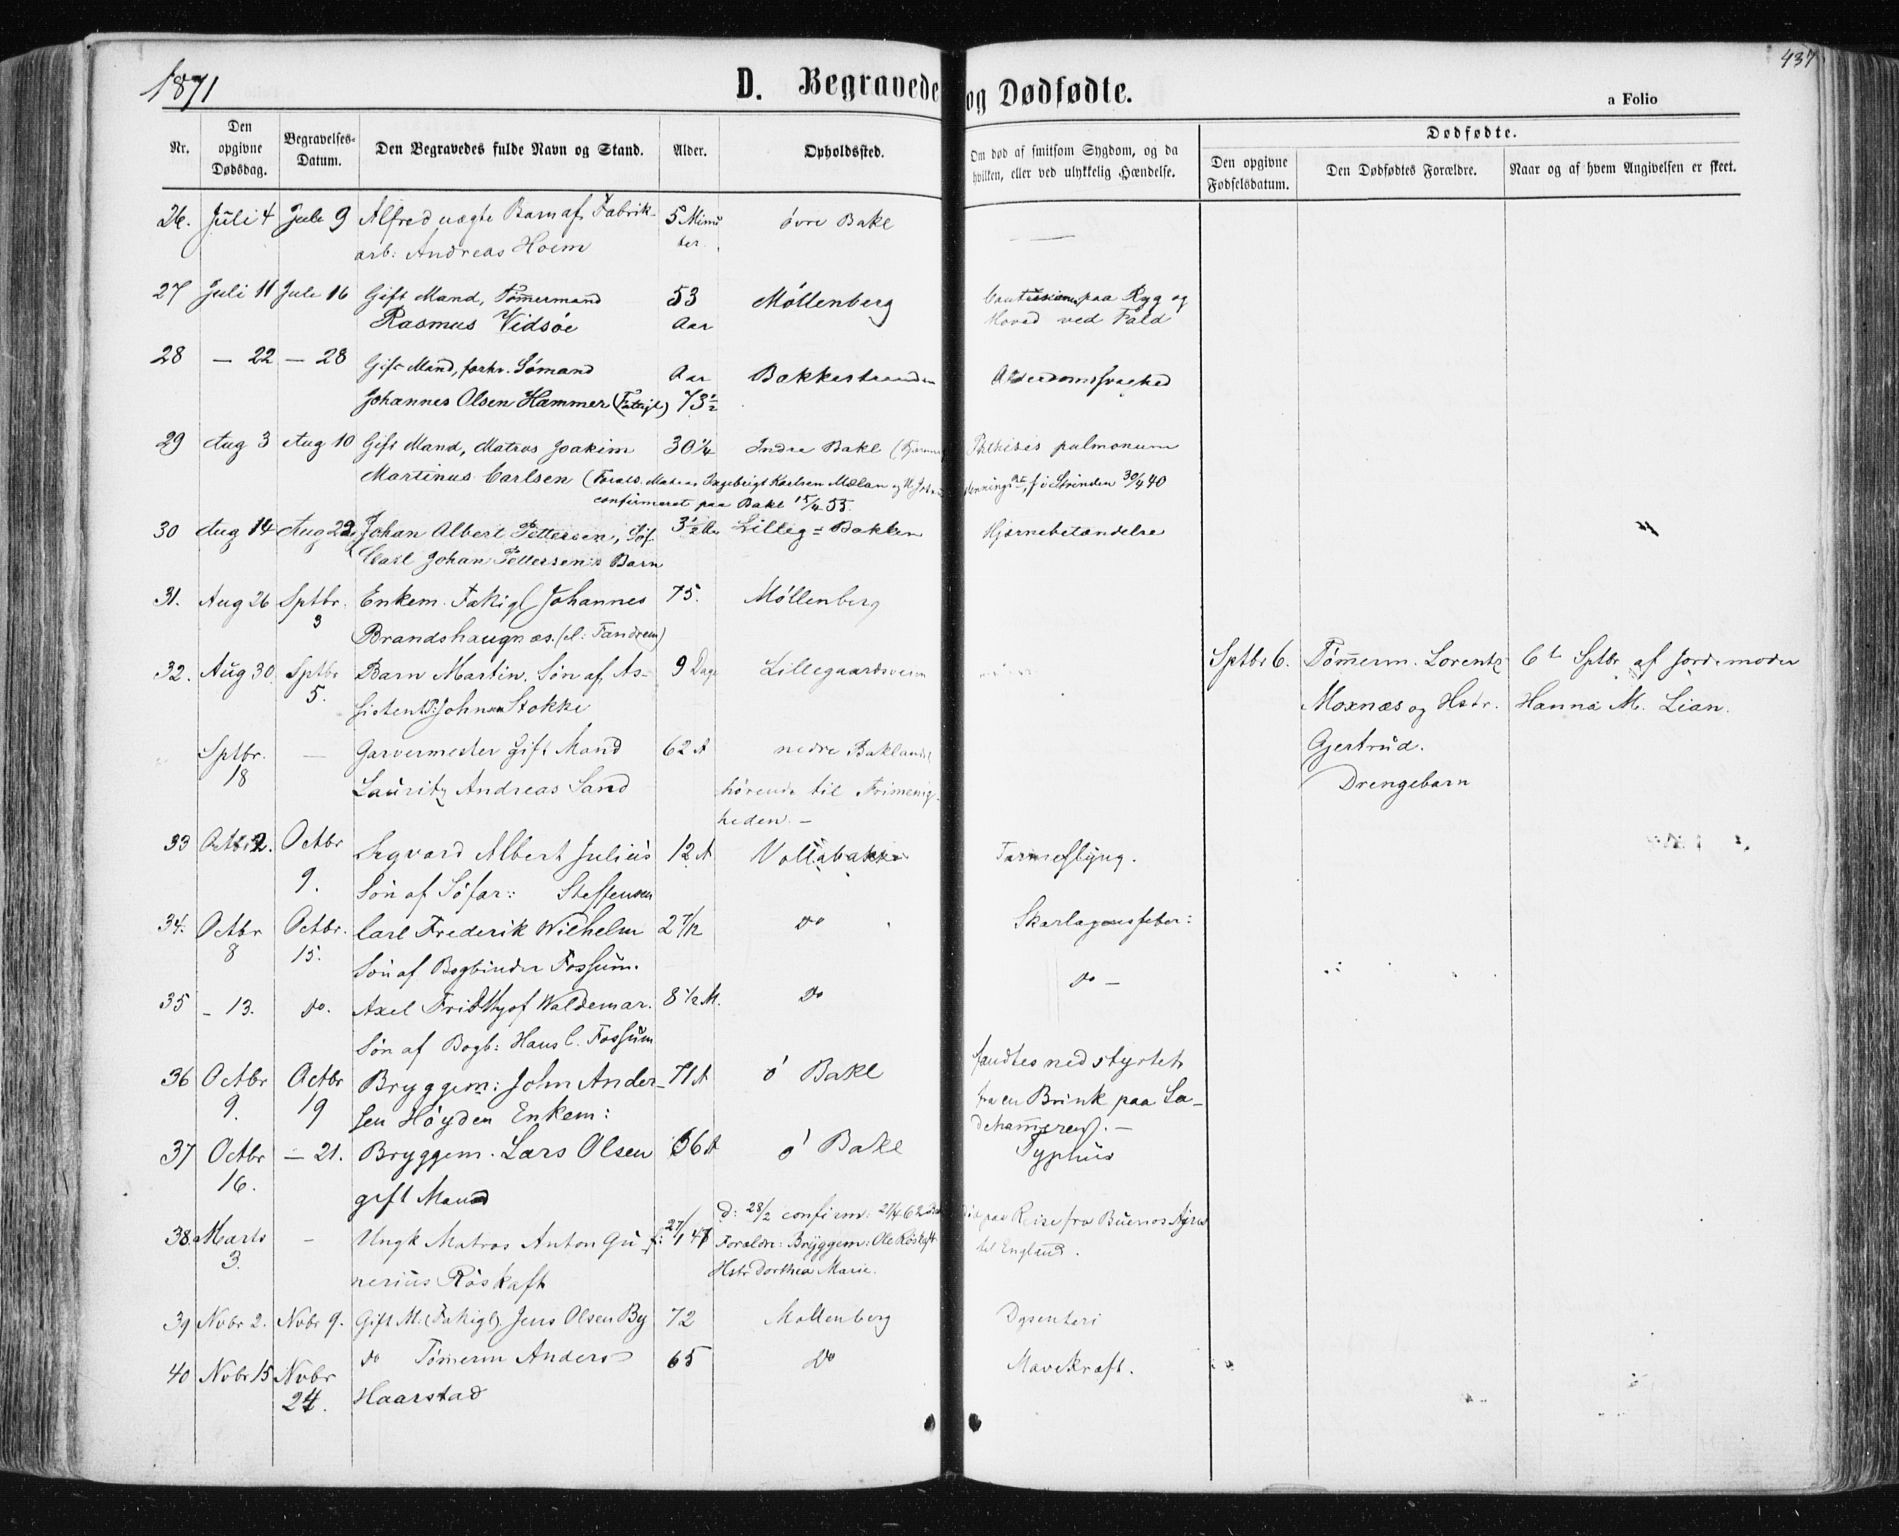 1871
437
D. Begravede og Dødfødte.
a Folio
Nr.
Den opgivne Dødsdag.
Begravelses-Datum.
Den Begravedes fulde Navn og Stand.
Alder.
Opholdssted.
Om død af smitsom Sygdom, og da hvilken, eller ved ulykkelig Hændelse.
Dødfødte.
Den opgivne Fødselsdatum.
Den Dødfødtes Forældre.
Naar og af hvem Angivelsen er skeet.
26. Juli 4 Juli 9 Alfred uægte Barn af Fabrik- 5 Minu øvre Bakl
arb: Andreas Hoem ter.
27 Juli 11 Juli 16 Gift Mand, Tømermand 53 Møllenberg paa Ryg og
Rasmus Vidsøe Aar Hoved ved Fald
28 — 22 — 28 Gift Mand, forhv. Sømand Aar Bakkestranden Alderdomssvaghed
Johannes Olsen Hammer (Fattigl) 73½
29 Aug 3 Aug 10 Gift Mand, Matros Joakim 30¼ Indre Bakl Phthisis pulmonum
Martinus Carlsen (Foræls. Matros Ingebrigt Karlsen Mælan f i Strinden 30/4 40
confirmeret paa Bakl 15/4 55.
30 Aug 14 Aug 22 Johan Albert Pettersen, Søf. 3½ Lilleg=Bakken Hjernebetændelse
Carl Johan Pettersens Barn
31. Aug 26 Sptbr. 3 Enkem. Fattigl Johannes 75. Møllenberg
Brandshaugnæs. (el: Tandrem)
32. Aug 30. Sptbr 5. Barn Martin. Søn af As- 9 Dage Lillegaardsveien
sistent P: Johnsen Stokke
Sptbr 6. Tømerm. Lorentz 6te Sptbr af Jordemoder
Moxnæs og Hstr. Hanna M. Lian.
Gjertrud.
Drengebarn
Sptbr. 18 — Garvermester Gift Mand 62 A nedre Baklandet
Lauritz Andreas Sand hørende til Frimenig-
heden. —
33 Octbr 2. Octbr 9. Sigvard Albert Julius 12 A Vollabakken Tarmeslyng.
Søn af Søfar: Steffensen
34. Octbr 8 Octbr. 15. Carl Frederik Wilhelm 2 7/12 do Skarlagensfeber:
Søn af Bogbinder Fossum.
35 — 13. do. Axel Fridthjof Waldemar. 8½ M. Do do —
Søn af Bogb: Hans C. Fossum
36 Octbr 9. Octbr 19 Bryggem: John Ander- 71 A ø Bakl fandtes nedstyrtet
sen Høyden Enkem: fra en Brink paa La-
dehammeren. —
37 Octbr 16. — 21. Bryggem. Lars Olsen 56 A ø Bakl Typhus
gift Mand
38. Marts 3. — Ungk Matros Anton Gu- f: 27/1 47 D: 28/2 confirm: 27/4 62 Død paa Reise fra Buenos Ayres
nerius Röskaft Forældr: Bryggem: Ole Röskaft til England.
Hstr Dorthea Marie.
39 Nvbr 2. Nvbr 9. Gift M. (Fattigl) Jens Olsen By 72 Mollenberg Dysenteri
40 Nvbr 15 Nvbr 24. do Tømerm Anders 65 Do Mavekræft.
Haarstad